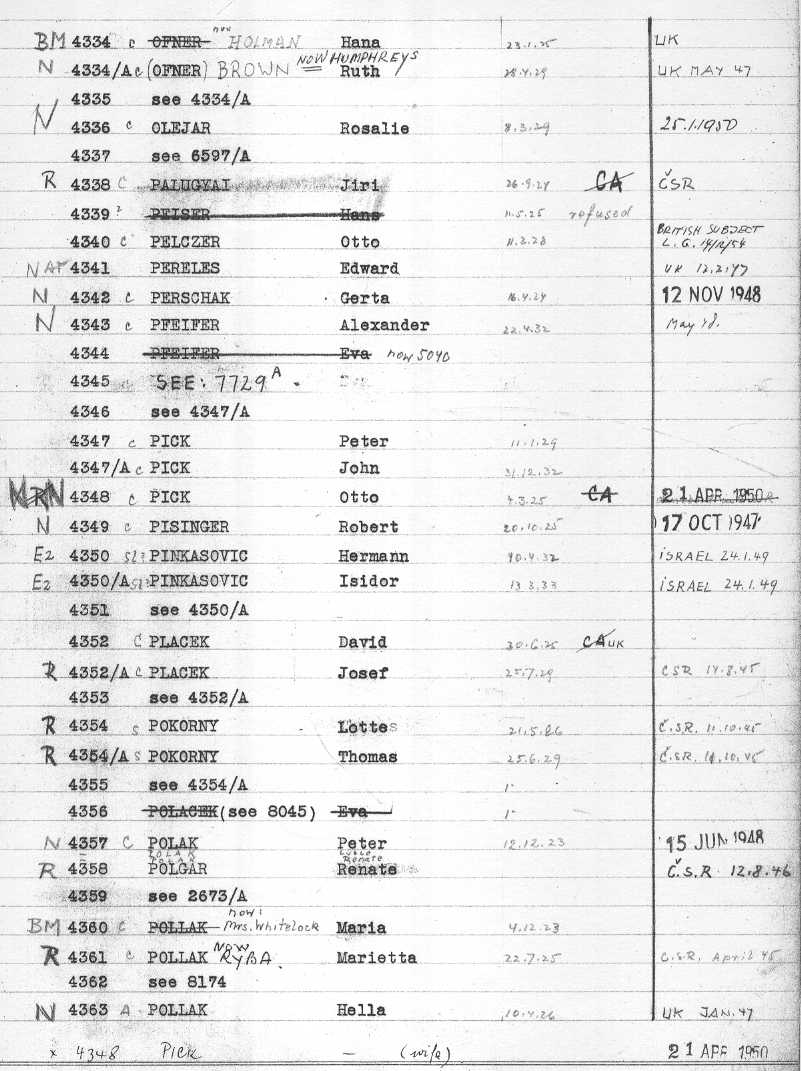 BM 4334 c OFNER now HOLMAN Hana 23.1.25 UK
N 4334/A c (OFNER) BROWN NOW HUMPHREYS Ruth 28.4.29 UK MAY 47
4335 see 4334/A
N 4336 c OLEJAR Rosalie 8.3.29 25.1.1950
4337 see 6597/A
R 4338 C PALUGYAI Jiri 26.9.24 CA ČSR
4339 ? PEISER Hans 11.5.25 refused
4340 c PELCZER Otto 11.3.28 BRITISH SUBJECT
L.G. 14/12/54
NAT 4341 PERELES Edward UK 12.2.47
N 4342 c PERSCHAK Gerta 16.4.24 12 NOV 1948
N 4343 c PFEIFER Alexander 22.4.32 May 48.
4344 PFEIFER Eva now 5040
4345 SEE: 7729A.
4346 see 4347/A
4347 c PICK Peter 11.1.29
4347/A c PICK John 31.12.32
N 4348 c PICK Otto 4.3.25 CA 21 APR 1950
N 4349 c PISINGER Robert 20.10.25 17 OCT 1947
E2 4350 sl? PINKASOVIC Hermann 4.32 iSRAEL 24.1.49
E2 4350/A sl? PINKASOVIC Isidor 3.33 iSRAEL 24.1.49
4351 see 4350/A
4352 C PLACEK David 30.6.25 CA UK
R 4352/A c PLACEK Josef 25.7.29 CSR 14.8.45
4353 see 4352/A
R 4354 s POKORNY Lottes 21.5.26 Č.S.R. 11.10.45
R 4354/A s POKORNY Thomas 25.6.29 Č.S.R. 10.45
4355 see 4354/A
4356 POLACEK (see 8045) Eva
N 4357 C POLAK Peter 12.12.23 15 JUN 1948
POLAK Renate
R 4358 POLGAR Renate Č.S.R. 12.8.46
4359 see 2673/A
BM 4360 c POLLAK now: Mrs. Whitelock Maria 4.12.23
R 4361 c POLLAK NOW RYBA. Marietta 22.7.25 C.S.R. April 45
4362 see 8174
N 4363 A POLLAK Hella 10.4.26 UK JAN.47
x 4348 PICK — (wife) 21 APR 1950